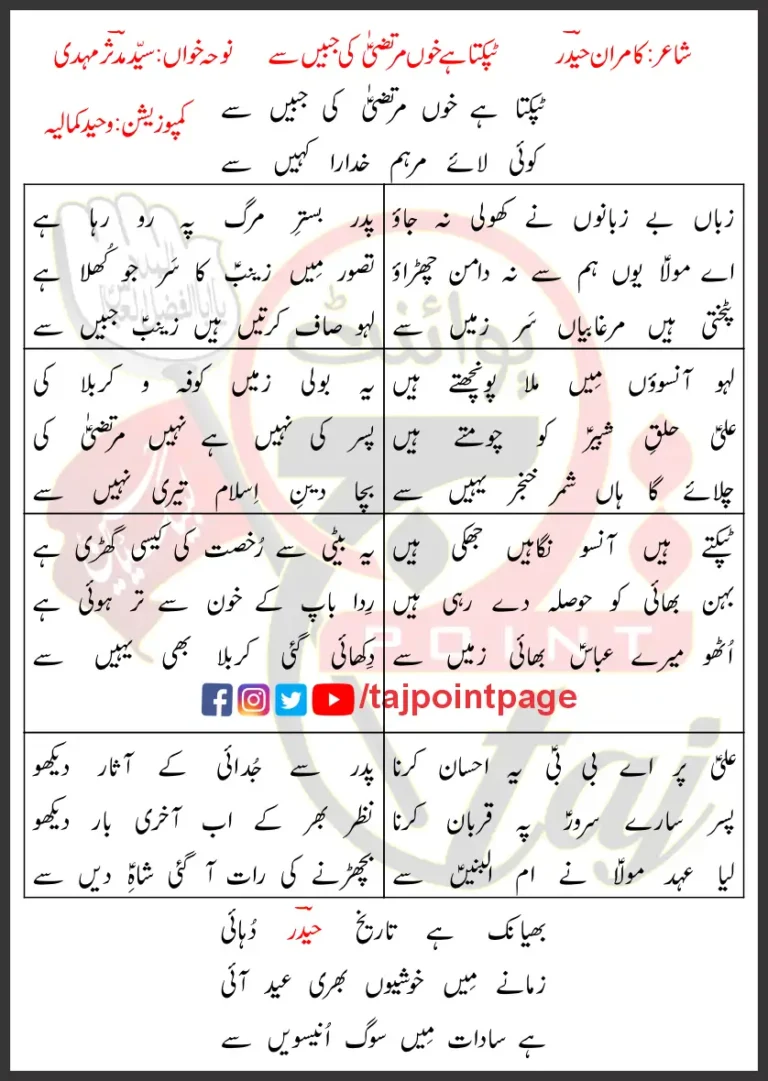 شاعر: کامران حیدرؔ ٹپکتا ہے خوں مرتضیٰؑ کی جبیں سے نوحہ خواں: سیّد مدثر مہدی
کمپوزیشن: وحید کمالیہ
ٹپکتا ہے خوں مرتضیٰؑ کی جبیں سے
کوئی لائے مرہم خدارا کہیں سے
زباں بے زبانوں نے کھولی نہ جاؤ
اے مولاؑ یوں ہم سے نہ دامن چھڑاؤ
پٹختی ہیں مرغابیاں سَر زمیں سے
پدر بسترِ مرگ پہ رو رہا ہے
تصور مِیں زینبؑ کا سَر جو کُھلا ہے
لہو صاف کرتیں ہیں زینبؑ جبیں سے
لہو آنسوؤں مِیں ملا پونچھتے ہیں
علیؑ حلقِ شبیرؑ کو چومتے ہیں
چلائے گا ہاں شمر خنجر یہیں سے
یہ بولی زمیں کوفہ و کربلا کی
پسر کی نہیں ہے نہیں مرتضیٰؑ کی
بچا دینِ اِسلام تیری نہیں سے
ٹپکتے ہیں آنسو نگاہیں جھکی ہیں
بہن بھائی کو حوصلہ دے رہی ہیں
اُٹھو میرے عباسؑ بھائی زمیں سے
یہ بیٹی سے رُخصت کی کیسی گھڑی ہے
رِدا باپ کے خون سے تر ہوئی ہے
دِکھائی گئی کربلا بھی یہیں سے
/tajpointpage
علیؑ پر اے بی بیؑ یہ احسان کرنا
پسر سارے سرورؑ پہ قربان کرنا
لیا عہد مولاؑ نے ام البنیںؑ سے
پدر سے جُدائی کے آثار دیکھو
نظر بھر کے اب آخری بار دیکھو
بچھڑنے کی رات آ گئی شاہِؑ دیں سے
بھیانک ہے تاریخ حیدرؔ دُہائی
زمانے مِیں خوشیوں بھری عید آئی
ہے سادات مِیں سوگ اُنیسویں سے
پوائنٹ
POINT
taj